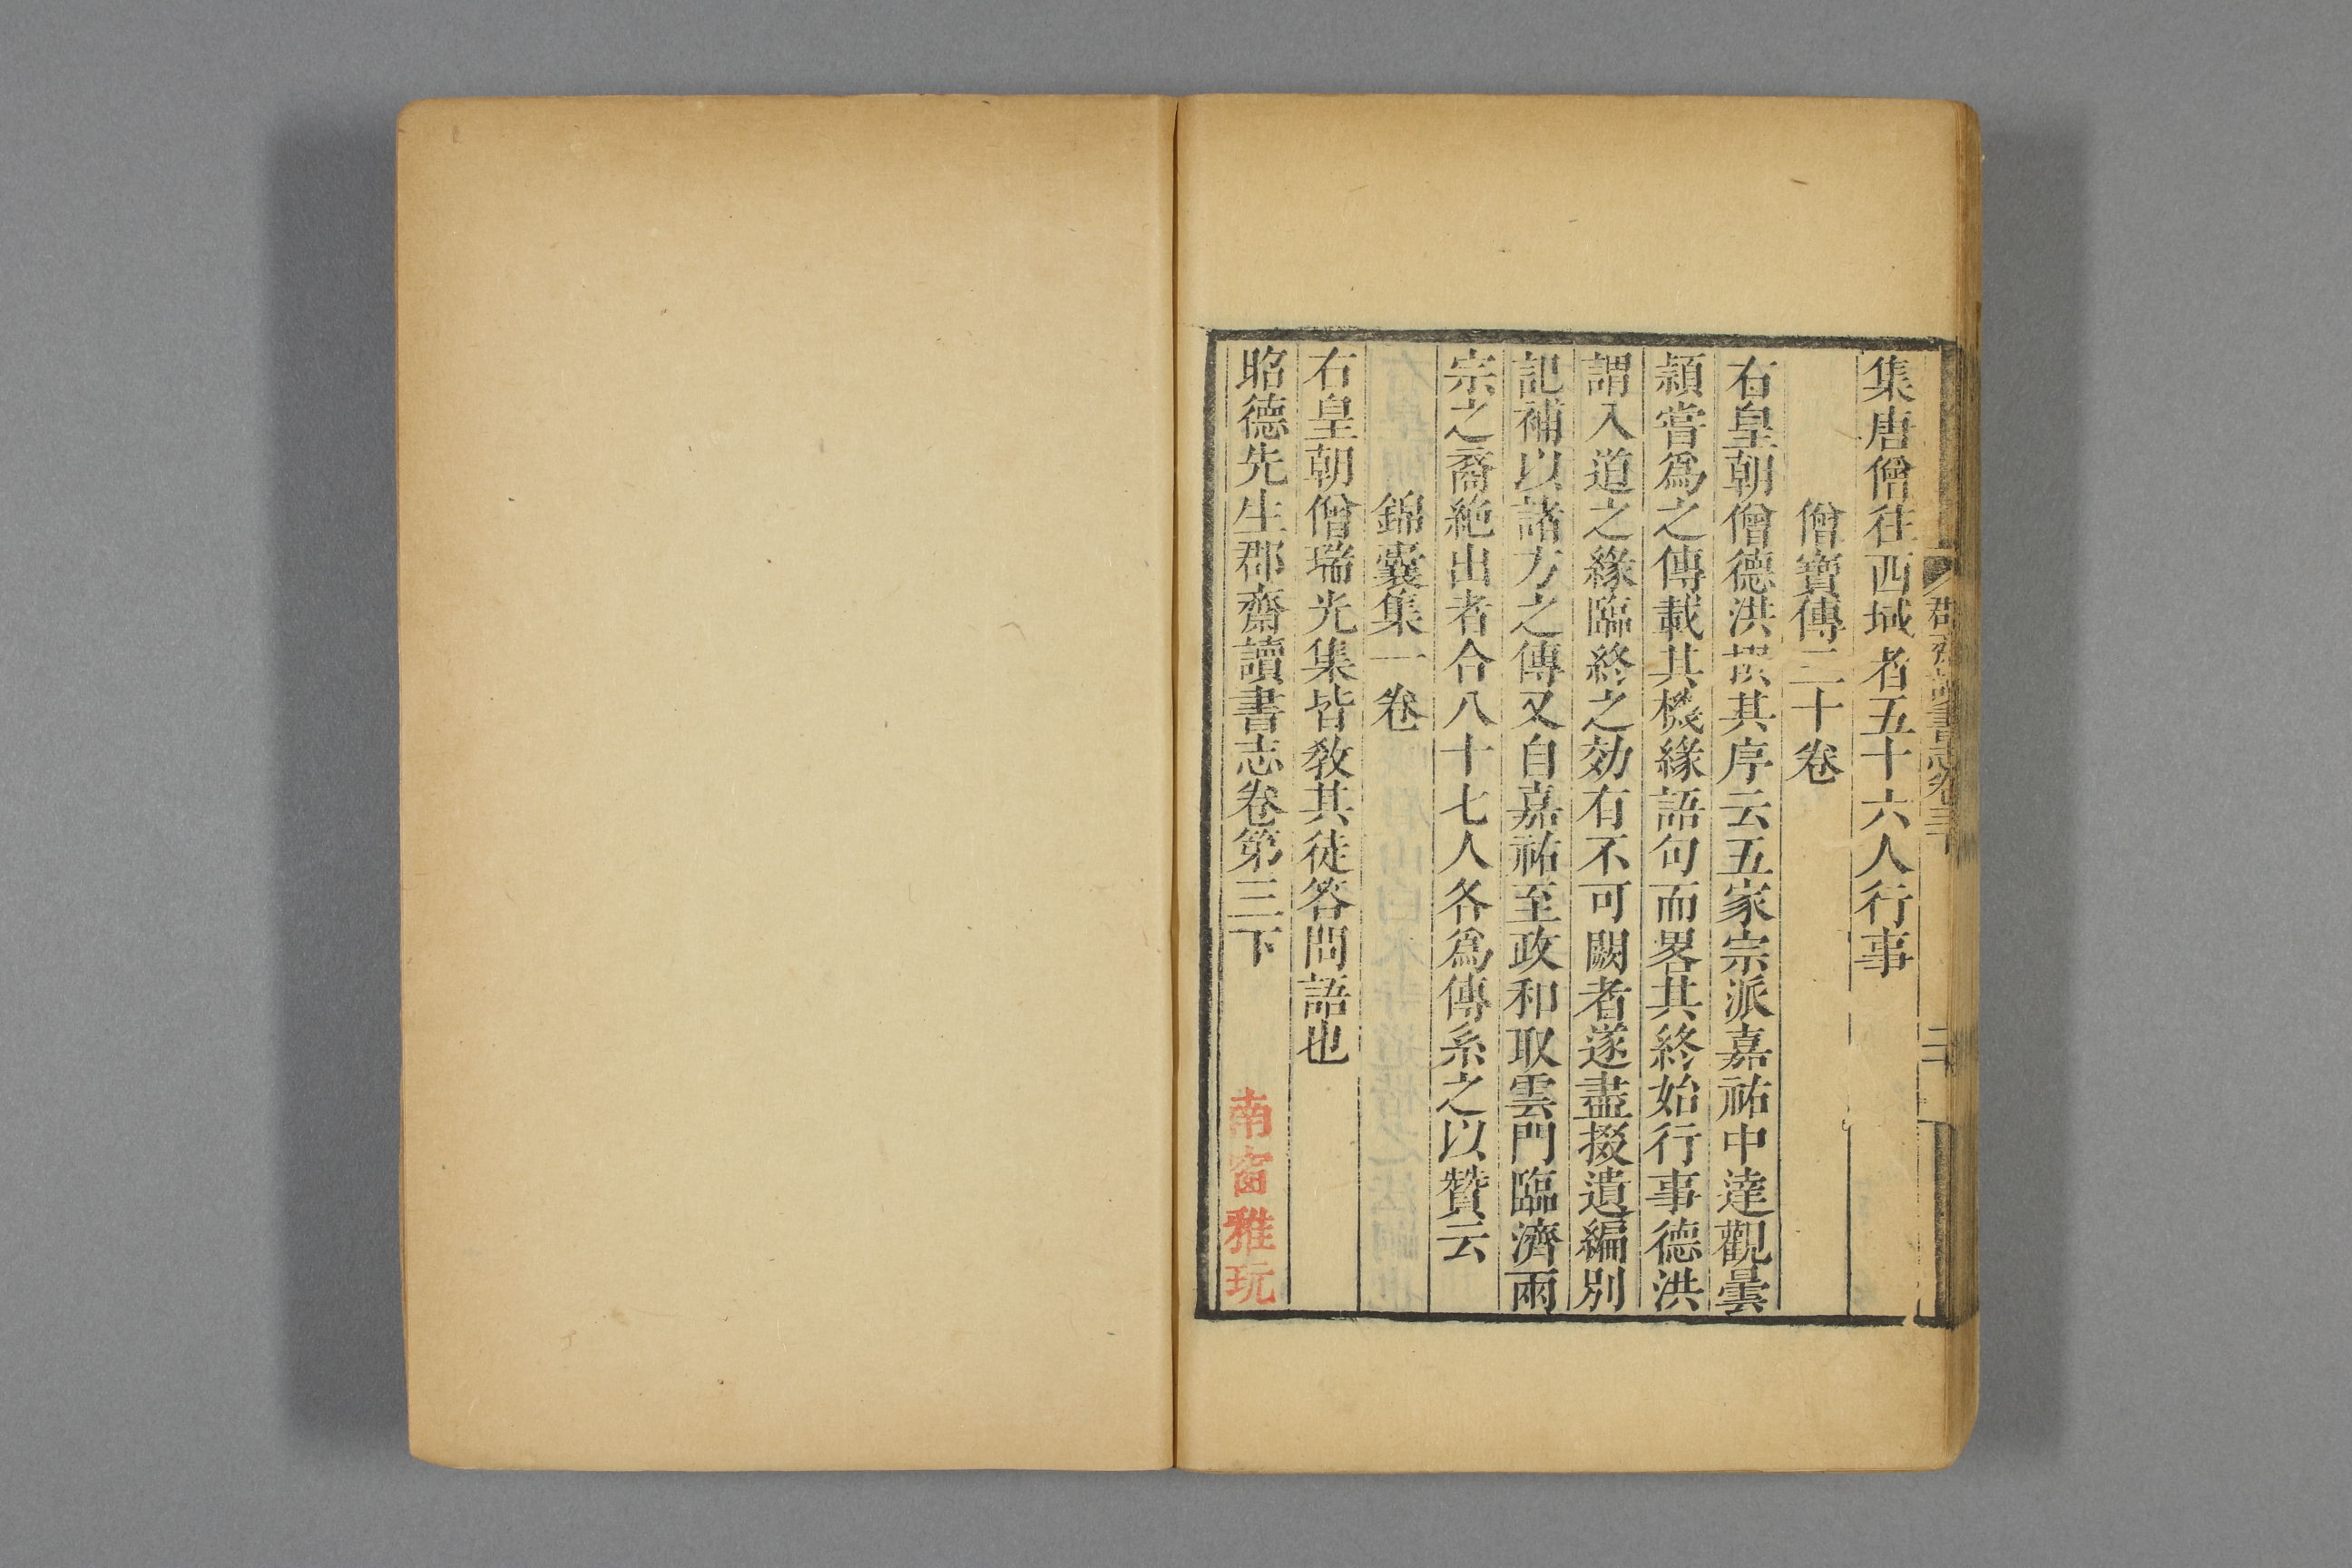 集唐僧往西域者五十六人行事
僧寶傳三十卷
右皇朝僧德洪撰其序云五家宗派嘉祐中達觀曇
頴嘗爲之傳載其機緣語句而畧其終始行事德洪
謂入道之緣臨終之効有不可闕者遂盡掇遺編別
記補以諸方之傳又自嘉祐至政和取雲門臨濟兩
宗之裔絶出者合八十七人各爲傳系之以贊云
錦囊集一卷
右皇朝僧瑞光集皆敎其徒答問語也
昭德先生郡齋讀書志卷第三下
南窗雅玩